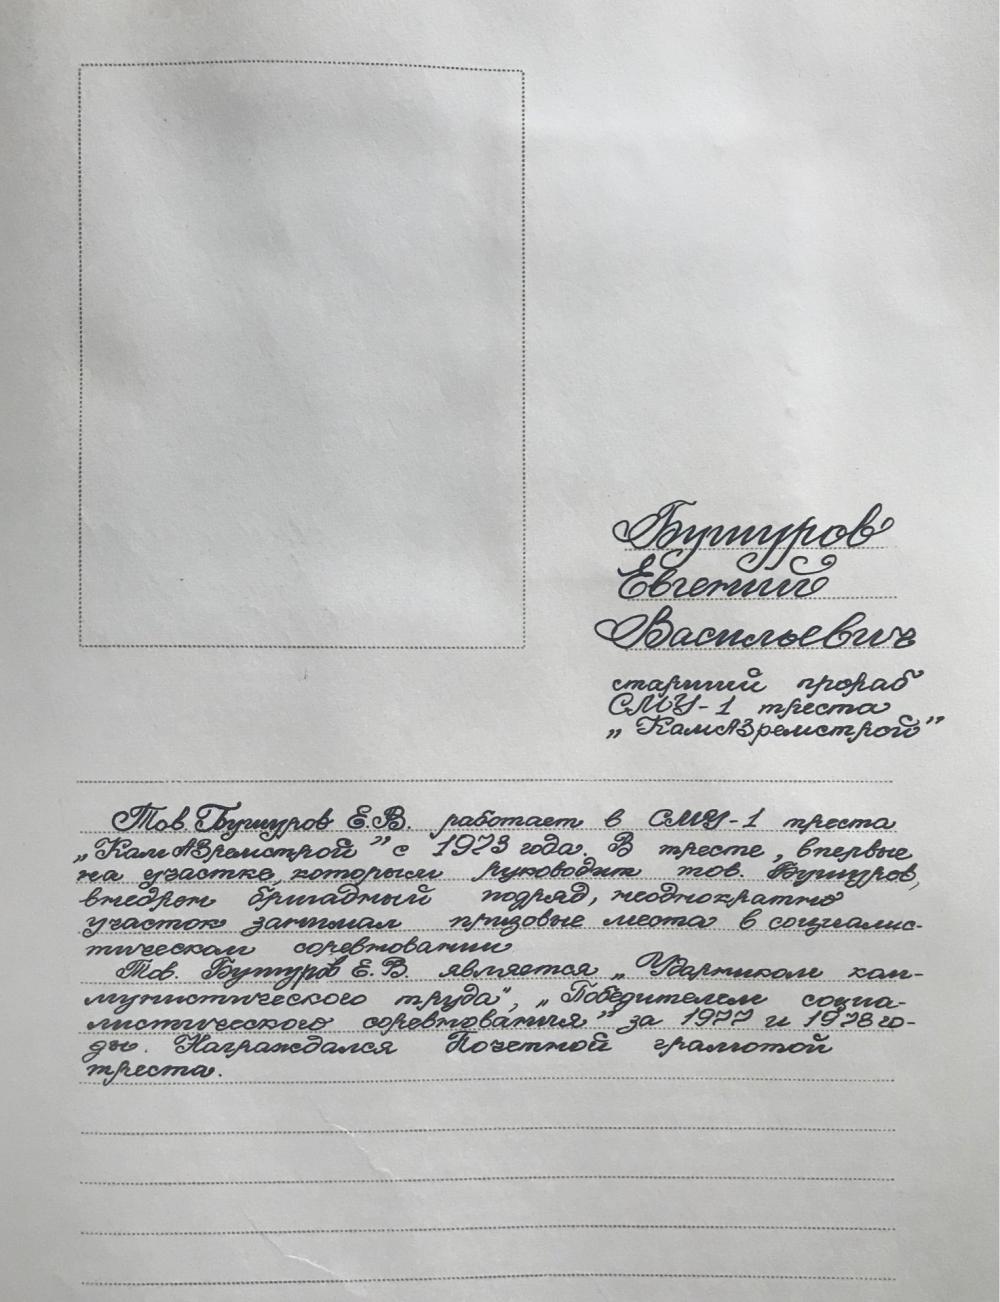 Бушуров
Евгений
Васильевич
старший прораб
СМУ-1 треста
„КамАЗремстрой”
Тов. Бушуров Е.В. работает в СМУ-1 треста
„КамАЗремстрой” с 1973 года. В тресте, впервые
на участке, которым руководит тов. Бушуров,
внедрен бригадный подряд, неоднократно
участок занимал призовые места в социалис-
тическом соревновании
Тов. Бушуров Е.В. является „Ударником ком-
мунистического труда”, „Победителем социа-
листического соревнования” за 1977 и 1978 го-
ды. Награждался Почетной грамотой
треста.